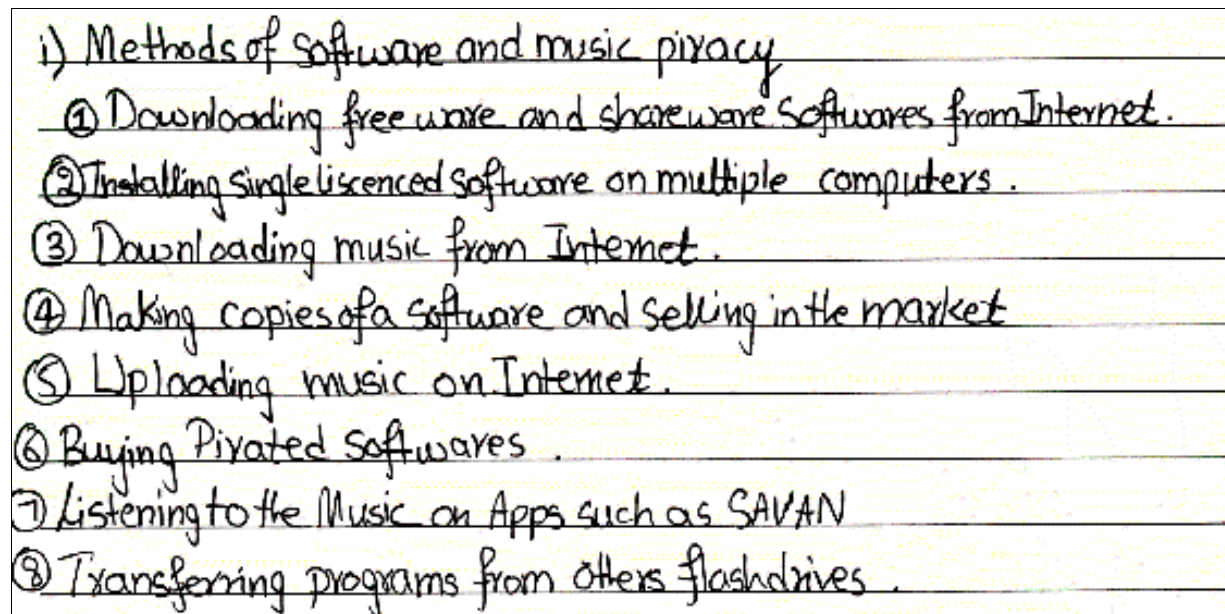 i) Methods of Software and music piracy
① Downloading free ware and shareware Softwares from Internet.
② Installing single liscenced Software on multiple computers.
③ Downloading music from Internet.
④ Making copies of a Software and selling in the market
⑤ Uploading music on Internet.
⑥ Buying Pirated Softwares.
⑦ Listening to the Music on Apps such as SAVAN
⑧ Transferring programs from others flashdrives.